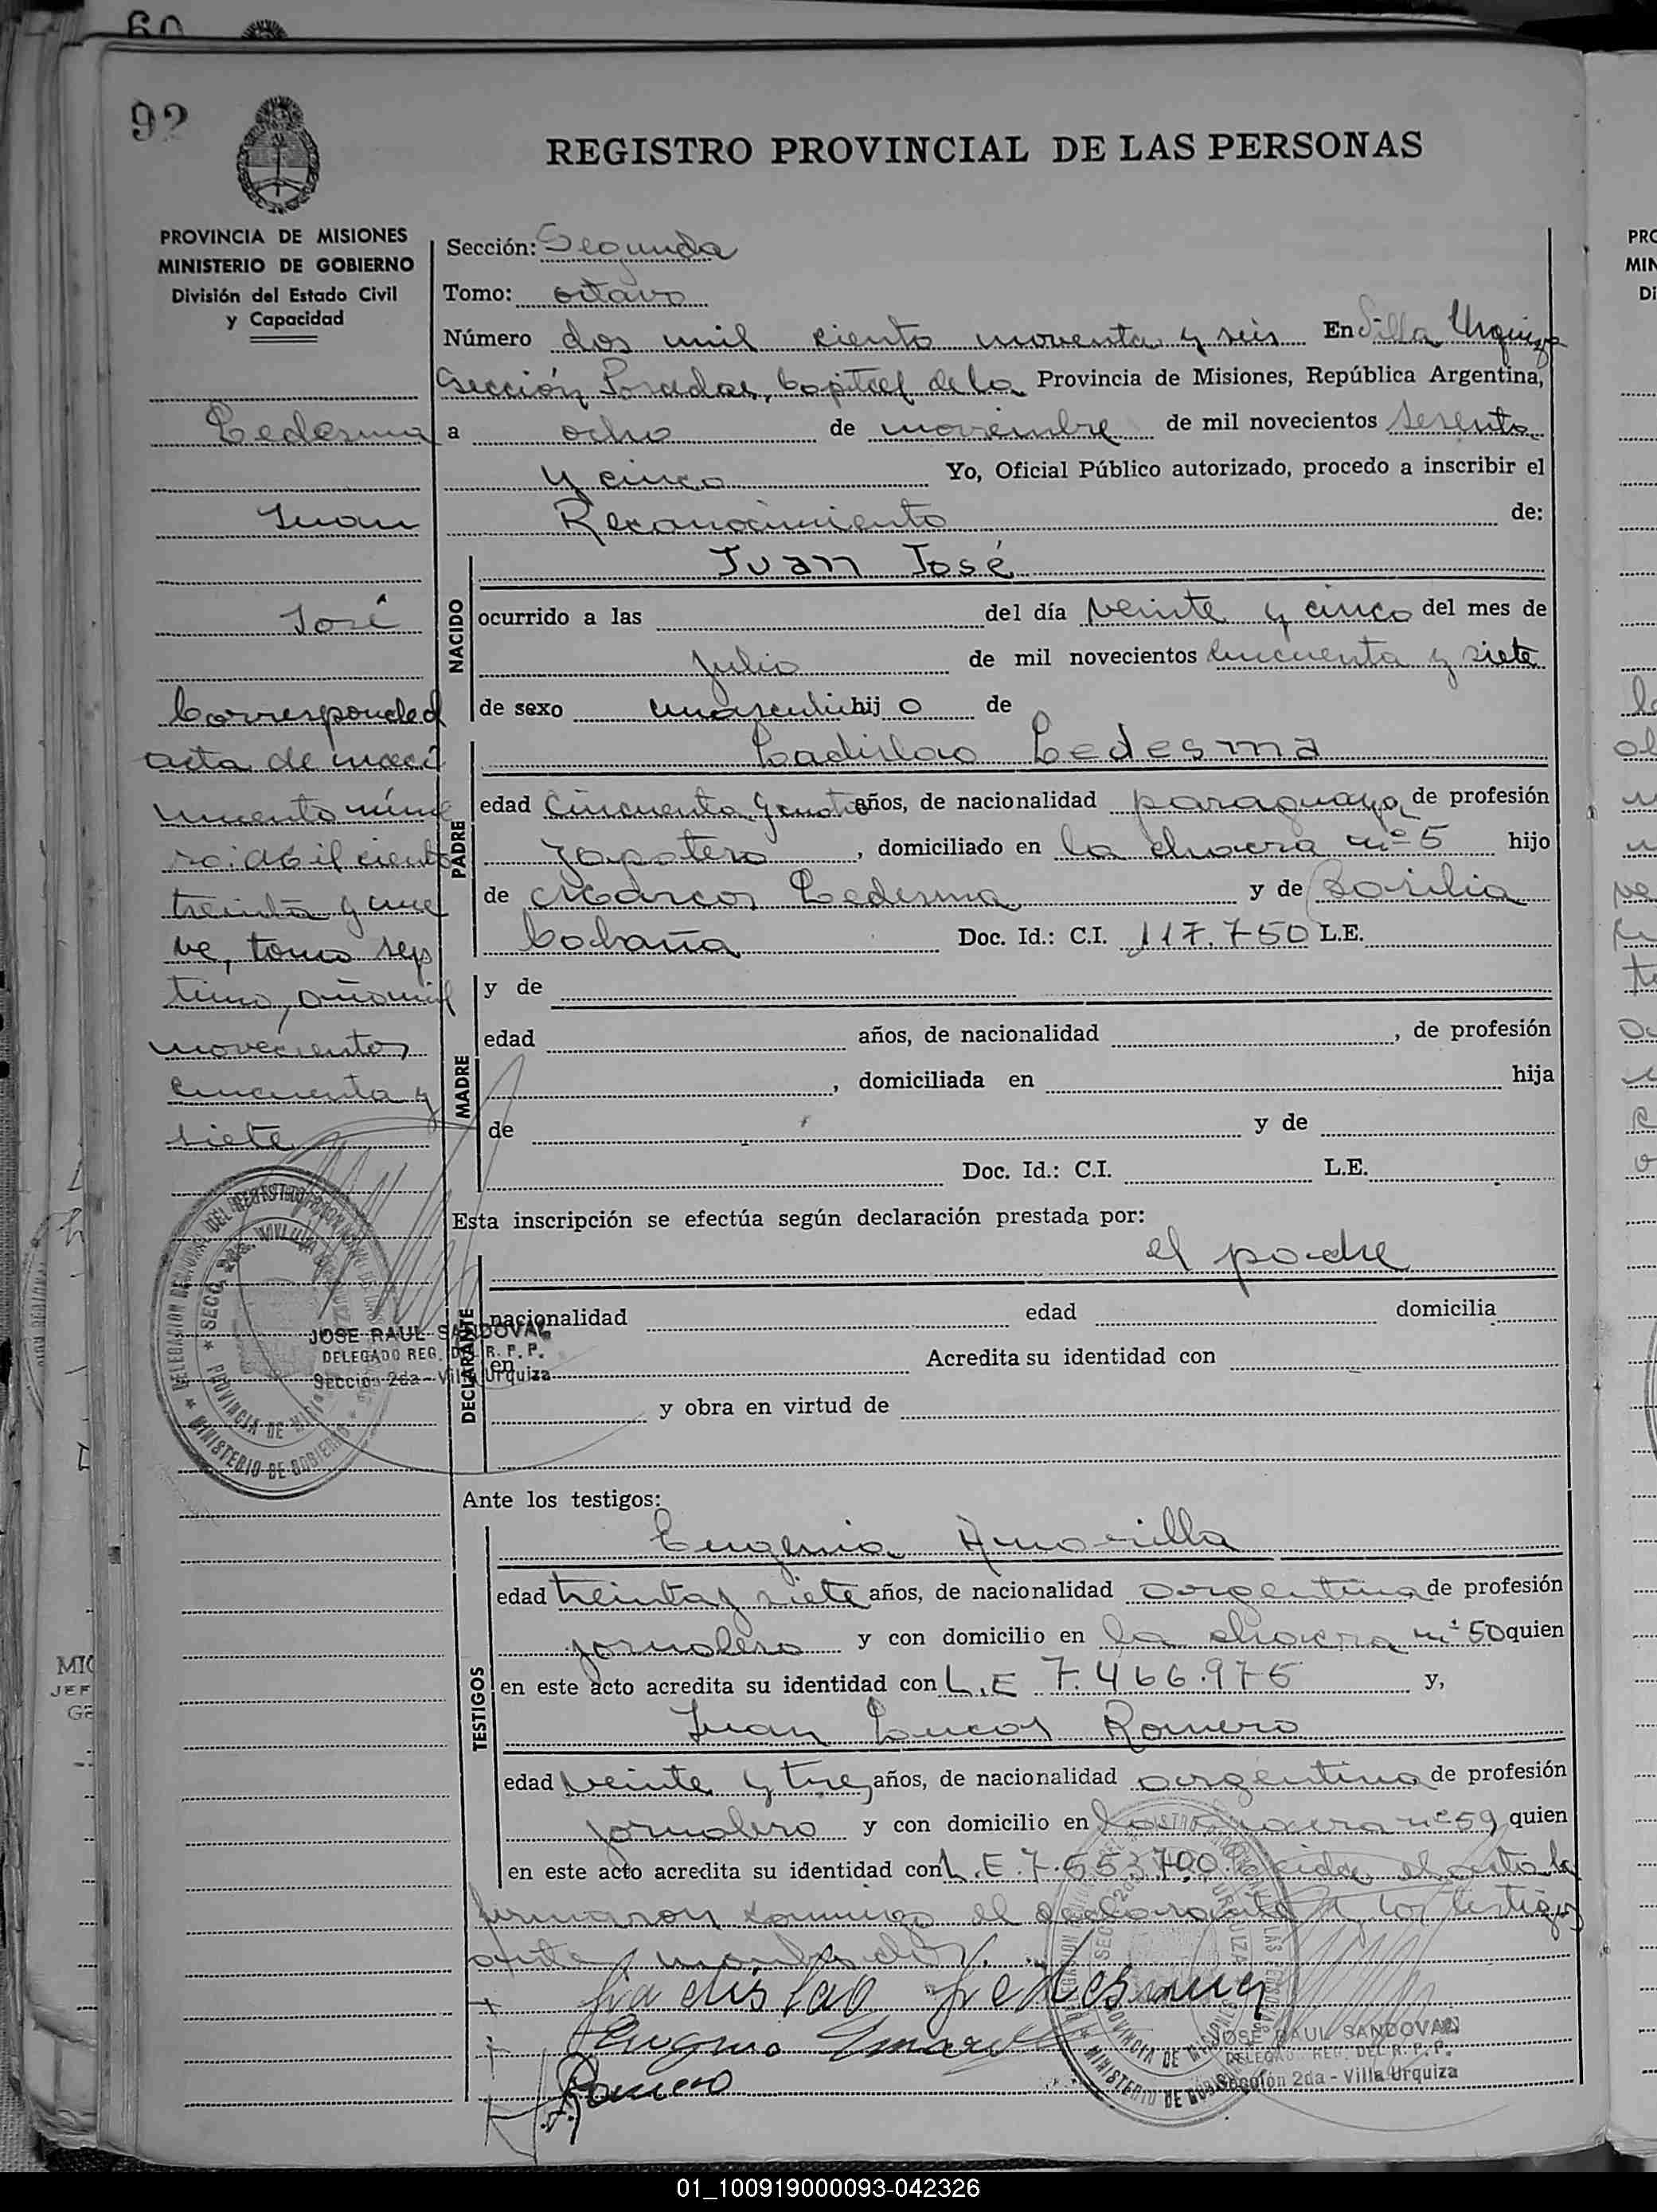 92
REGISTRO PROVINCIAL DE LAS PERSONAS
PROVINCIA DE MISIONES
MINISTERIO DE GOBIERNO
División del Estado Civil
y Capacidad
Ledesma
Juan
José
Corresponde al
acta de naci
miento núme
ro: dos mil ciento
treinta y nue
ve, tomo sep
timo, año mil
novecientos
cincuenta y
siete
JOSE RAUL SANDOVAL
DELEGADO REG. DEL R. P. P.
Sección 2da - Villa Urquiza
Sección: Segunda
Tomo: octavo
Número dos mil ciento noventa y seis En Villa Urquiza
Sección Posadas, Capital de la Provincia de Misiones, República Argentina,
a ocho de noviembre de mil novecientos sesenta
y cinco Yo, Oficial Público autorizado, procedo a inscribir el
Reconocimiento de:
NACIDO
Juan José
ocurrido a las del día veinte y cinco del mes de
julio de mil novecientos cincuenta y siete
de sexo masculi hij o de
PADRE
Ladislao Ledesma
edad cincuenta y años, de nacionalidad paraguaya de profesión
zapatero, domiciliado en la chacra nº 5 hijo
de Marcos Ledesma y de Basilia
Cabaña Doc. Id.: C.I. 117.750 L.E.
MADRE
y de
edad años, de nacionalidad , de profesión
, domiciliada en hija
de y de
Doc. Id.: C.I. L.E.
Esta inscripción se efectúa según declaración prestada por:
DECLARANTE
el padre
nacionalidad edad domicilia
en Acredita su identidad con
y obra en virtud de
Ante los testigos:
TESTIGOS
Eugenio Amarilla
edad treinta y siete años, de nacionalidad argentina de profesión
jornalero y con domicilio en la chacra nº 50 quien
en este acto acredita su identidad con L.E 7.466.975 y,
Juan Lucas Romero
edad veinte y tres años, de nacionalidad argentina de profesión
jornalero y con domicilio en la chacra nº 59 quien
en este acto acredita su identidad con L.E. 7.553.700. el acta la
firmaron conmigo el declarante y los testigos
ante
Ladislao Ledesma
Eugenio Amarilla
Romero
JOSE RAUL SANDOVAL
DELEGADO REG. DEL R. P. P.
Sección 2da - Villa Urquiza
01_100919000093-042326